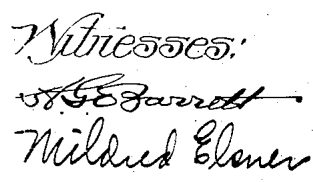 Witnesses:
A. G. E. Barrett
Mildred Elsner